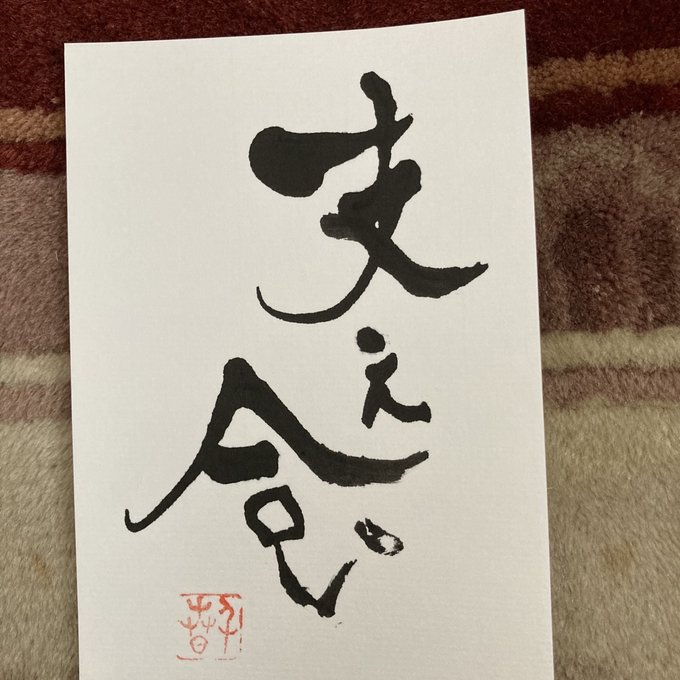 支え合い